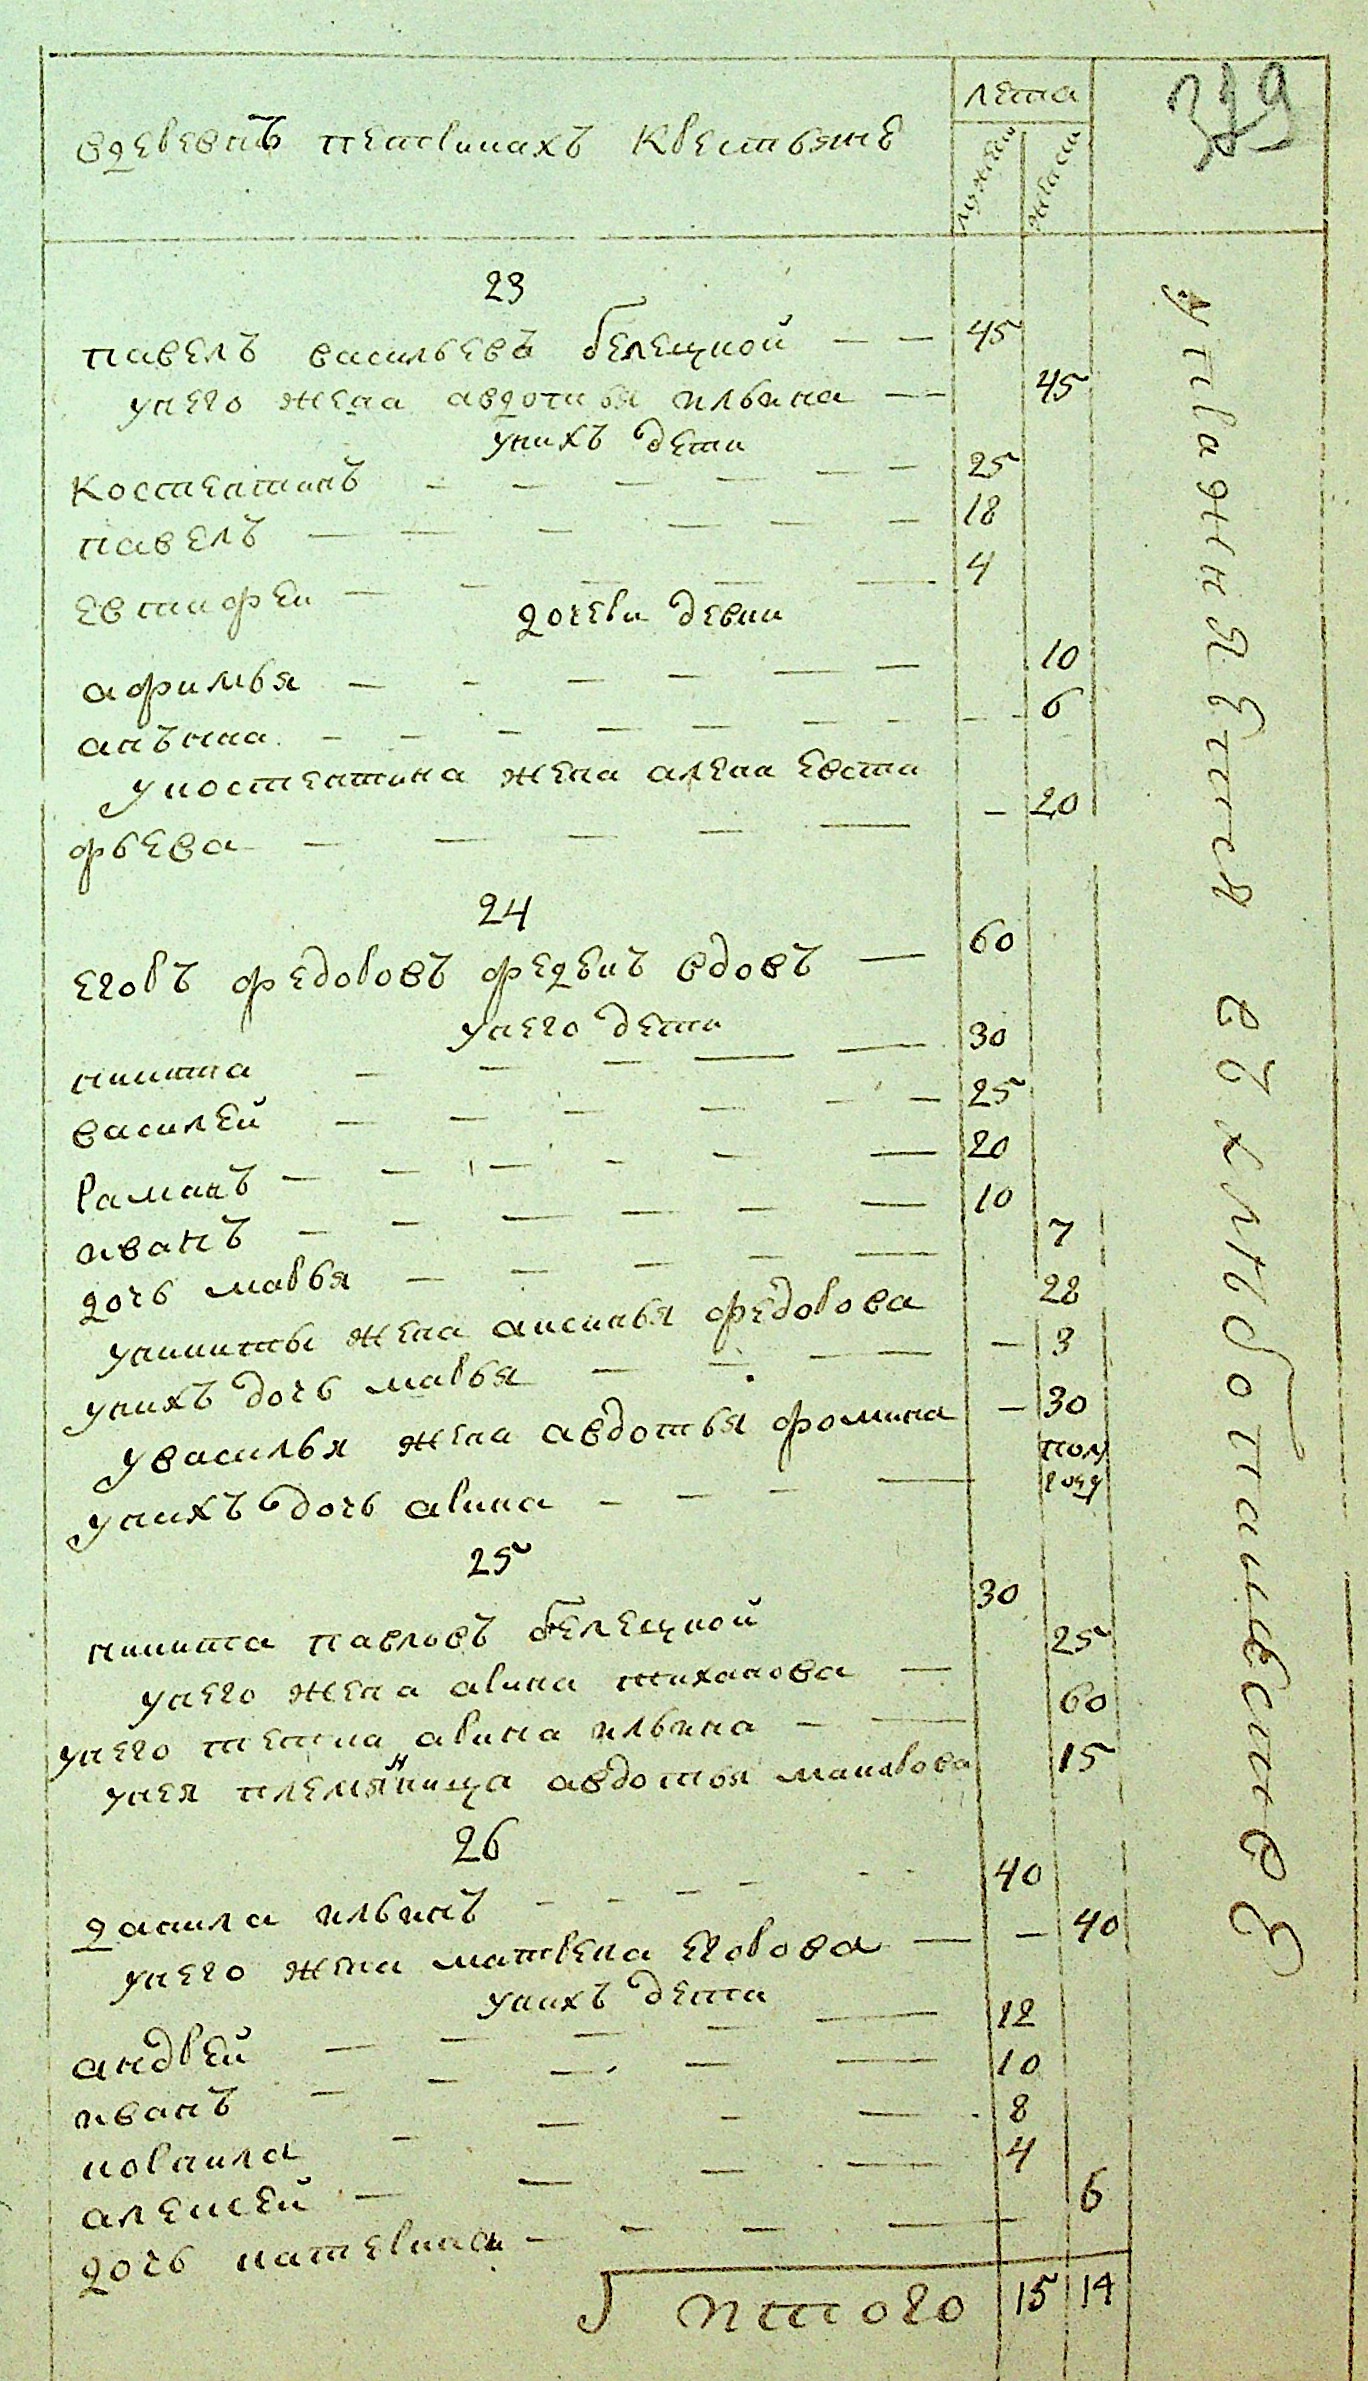 вдеревнѣ петринахъ крестьяне
лета
мужеск
женск
379
23
павелъ васильевъ белецкой — — 45
унего жена авдотья ильина — — 45
унихъ дети
костентинъ — — — — — 25
павелъ — — — — — — 18
евтифеи — — — — — 4
дочери девки
афимья — — — — — — 10
анъна — — — — — — — — 6
укостентина жена алена евсти
фьева — — — — — — 20
24
егоръ федоровъ вдовъ — 60
унего дети
никита — — — — — 30
василей — — — — — — 25
раманъ — — — — — — 20
иванъ — — — — — — 10
дочь марья — — — — — — 7
уникиты жена аксинья федорова 28
унихъ дочь марья — — — — — 3
увасилья жена авдотья фомина — 30
унихъ дочь арина — — — — полу
году
25
никита павловъ белецкой 30
унего жена арина тиханова — 25
унего тетка арина ильина — — 60
унея племянница авдотья макарова 15
26
данила ильинъ — — — — 40
унего жена матрена егорова — — 40
унихъ дети
андрей — — — — — 12
иванъ — — — — — 10
корнила — — — — 8
алексей — — — — 4
дочь катерина — — — — — 6
итого 15 14